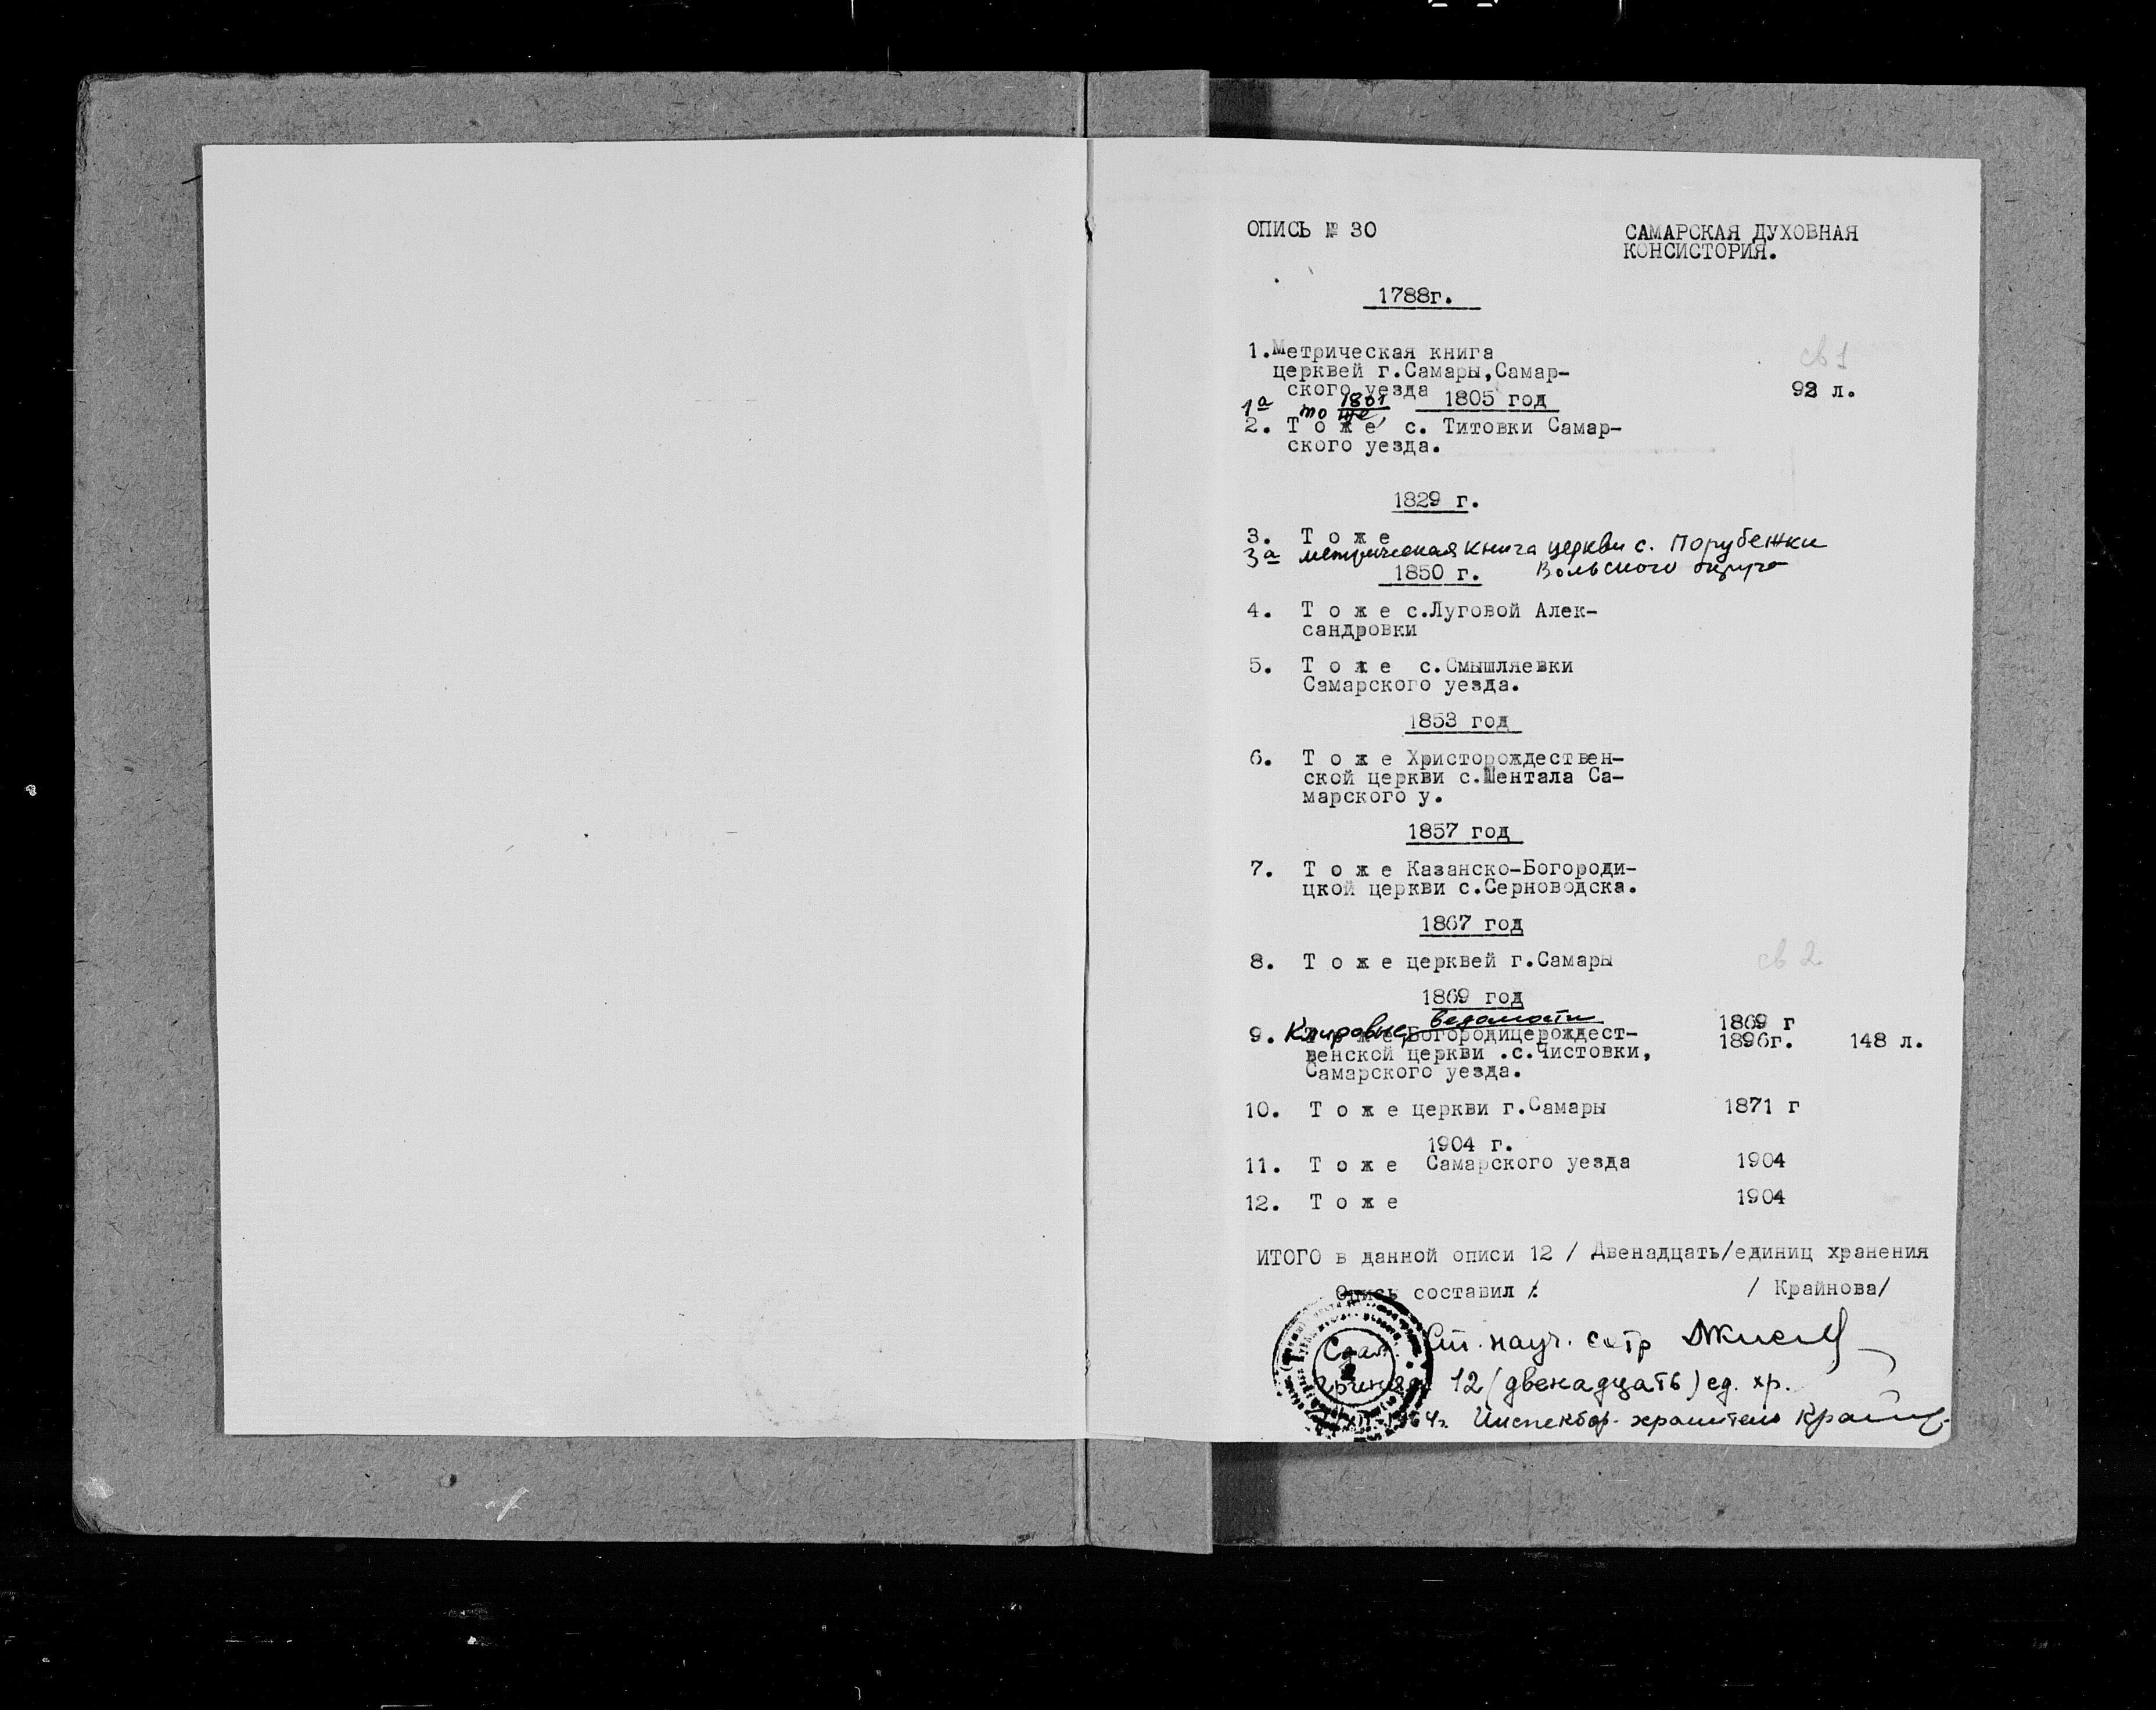 ОПИСЬ № 30
САМАРСКАЯ ДУХОВНАЯ
КОНСИСТОРИЯ.
1788г.
1. Метрическая книга
церквей г.Самары,Самар-
ского уезда
св 1
92 л.
1801
1805 год
1а то же
2. Т о ж е с. Титовки Самар-
ского уезда.
1829 г.
3. Т о ж е
3а метрическая книга церкви с. Порубежки
Вольского округа
1850 г.
4. Т о ж е с.Луговой Алек-
сандровки
5. Т о ж е с.Смышляевки
Самарского уезда.
1853 год
6. Т о ж е Христорождествен-
ской церкви с.Шентала Са-
марского у.
1857 год
7. Т о ж е Казанско-Богороди-
цкой церкви с.Серноводска.
1867 год
8. Т о ж е церквей г.Самары
св 2
1869 год
Клировые ведомости
9. Богородицерождест-
венской церкви .с.Чистовки,
Самарского уезда.
1869 г
1896г. 148 л.
10. Т о ж е церкви г.Самары 1871 г
1904 г.
11. Т о ж е Самарского уезда 1904
12. Т о ж е 1904
ИТОГО в данной описи 12 / Двенадцать/единиц хранения
Опись составил /: / Крайнова/
Сдал: Ст. науч. сотр
Принял 12 (двенадцать) ед. хр.
Инспектор-хранитель